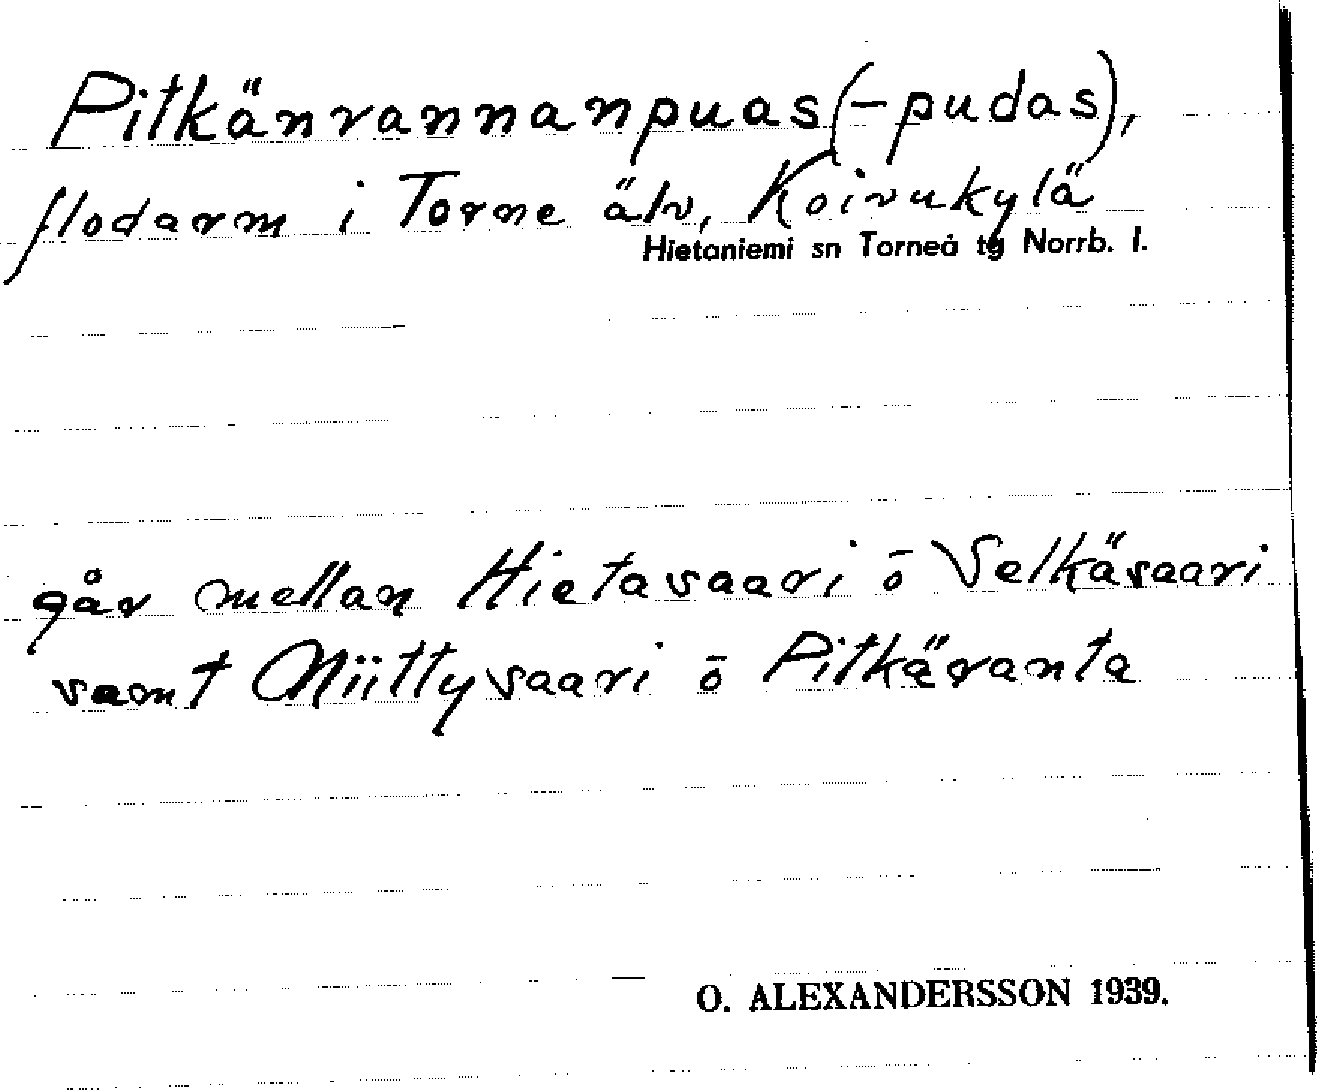 Pitkänrannanpuas (-pudas),
flodarm i Torne älv, Koivukylä
Hietaniemi sn Torneå tg Norrb. l.
går mellan Hietasaari ō Selkäsaari
samt Niittysaari ō Pitkäranta
O. ALEXANDERSSON 1939.